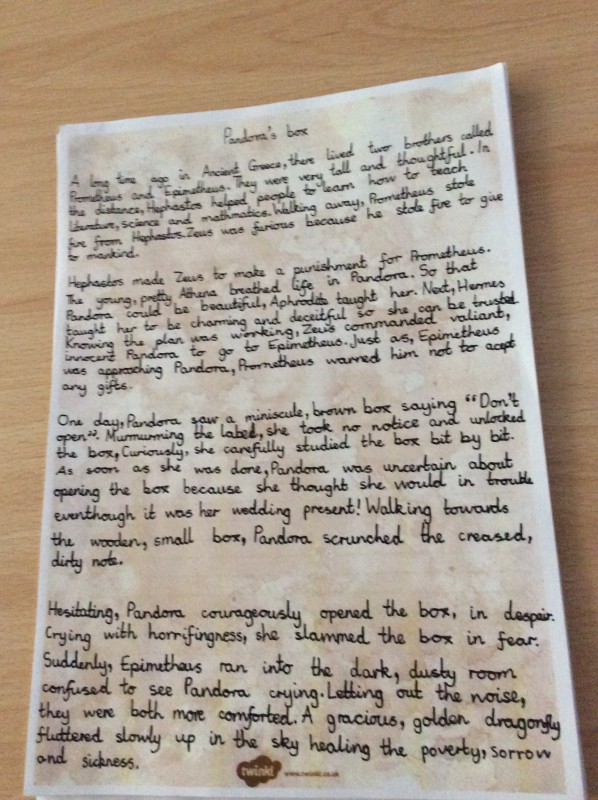 Pandora's box
A long time ago in Ancient Greece, there lived two brothers called
Prometheus and Epimetheus. They were very tall and thoughtful. In
the distance, Hephastos helped people to learn how to teach
literature, science and mathmatics. Walking away, Prometheus stole
fire from Hephastos. Zeus was furious because he stole fire to give
to mankind.
Hephastos made Zeus to make a punishment for Prometheus.
The young, pretty Athena breathed life in Pandora. So that
Pandora could be beautiful, Aphrodite taught her. Next, Hermes
taught her to be charming and deceitful so she can be trusted
Knowing the plan was working, Zeus commanded valiant,
innocent Pandora to go to Epimetheus. Just as, Epimetheus
was approaching Pandora, Prometheus warned him not to acept
any gifts.
One day, Pandora saw a miniscule, brown box saying "Don't
open". Murmurming the label, she took no notice and unlocked
the box, Curiously, she carefully studied the box bit by bit.
As soon as she was done, Pandora was uncertain about
opening the box because she thought she would in trouble
eventhough it was her wedding present! Walking towards
the wooden, small box, Pandora scrunched the creased,
dirty note.
Hesitating, Pandora courageously opened the box, in despair.
Crying with horrifingness, she slammed the box in fear.
Suddenly, Epimetheus ran into the dark, dusty room
confused to see Pandora crying. Letting out the noise,
they were both more comforted. A gracious, golden dragonfly
fluttered slowly up in the sky healing the poverty, sorrow
and sickness.
twinkl www.twinkl.co.uk